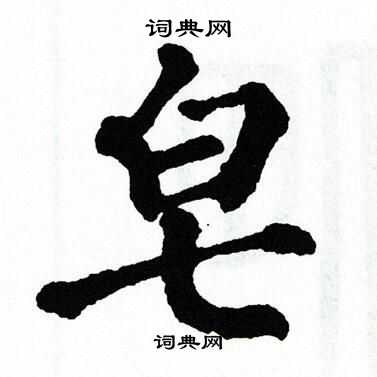 词典网
皂
词典网